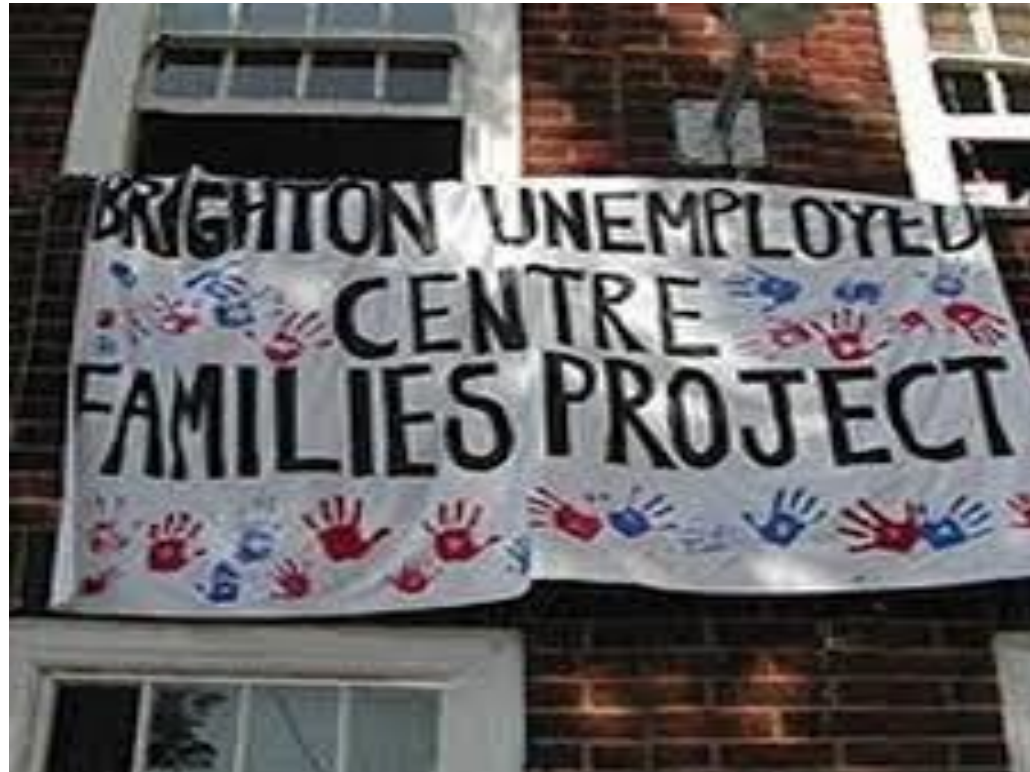 BRIGHTON UNEMPLOYED
CENTRE
FAMILIES PROJECT